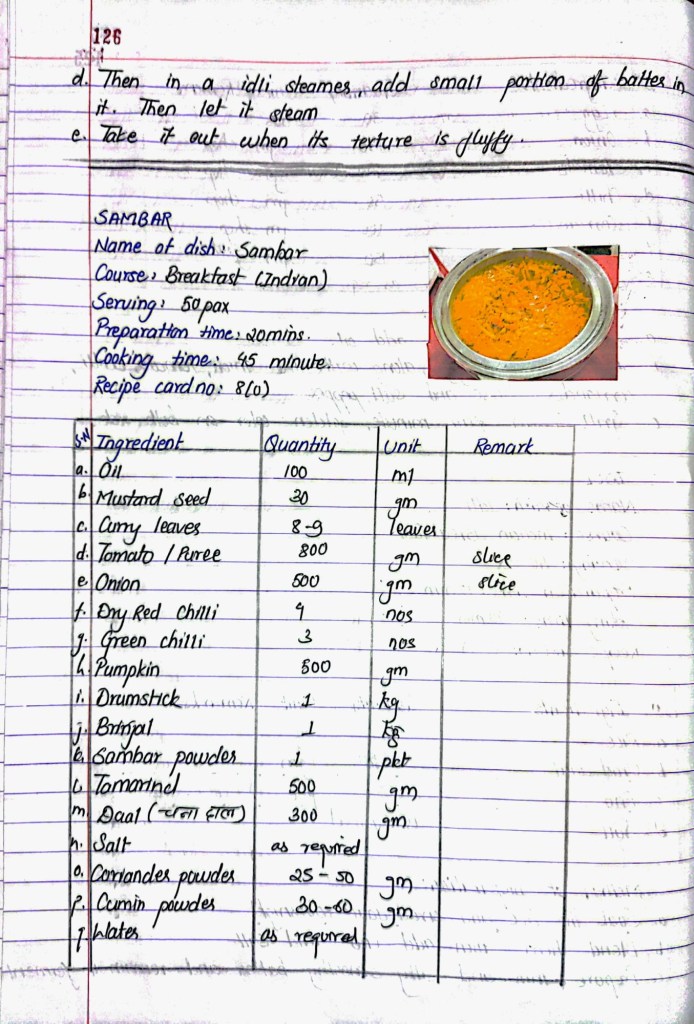 126
d. Then in a idli steamer, add small portion of batter in
it. Then let it steam
e. Take it out when its texture is fluffy.
SAMBAR
Name of dish: Sambar
Course: Breakfast (Indian)
Serving: 50 pax
Preparation time: 20mins.
Cooking time: 45 minute.
Recipe card no: 8(0)
S.N Ingredient Quantity Unit Remark
a. Oil 100 ml
b. Mustard seed 30 gm
c. Curry leaves 8-9 leaves
d. Tomato / Puree 800 gm slice
e. Onion 500 gm slice
f. Dry Red chilli 4 nos
g. Green chilli 3 nos
h. Pumpkin 500 gm
i. Drumstick 1 kg
j. Brinjal 1 kg
k. Sambar powder 1 pkt
l. Tamarind 500 gm
m. Daal (चना दाल) 300 gm
n. Salt as required
o. Corriander powder 25-50 gm
p. Cumin powder 30-60 gm
q. Water as required